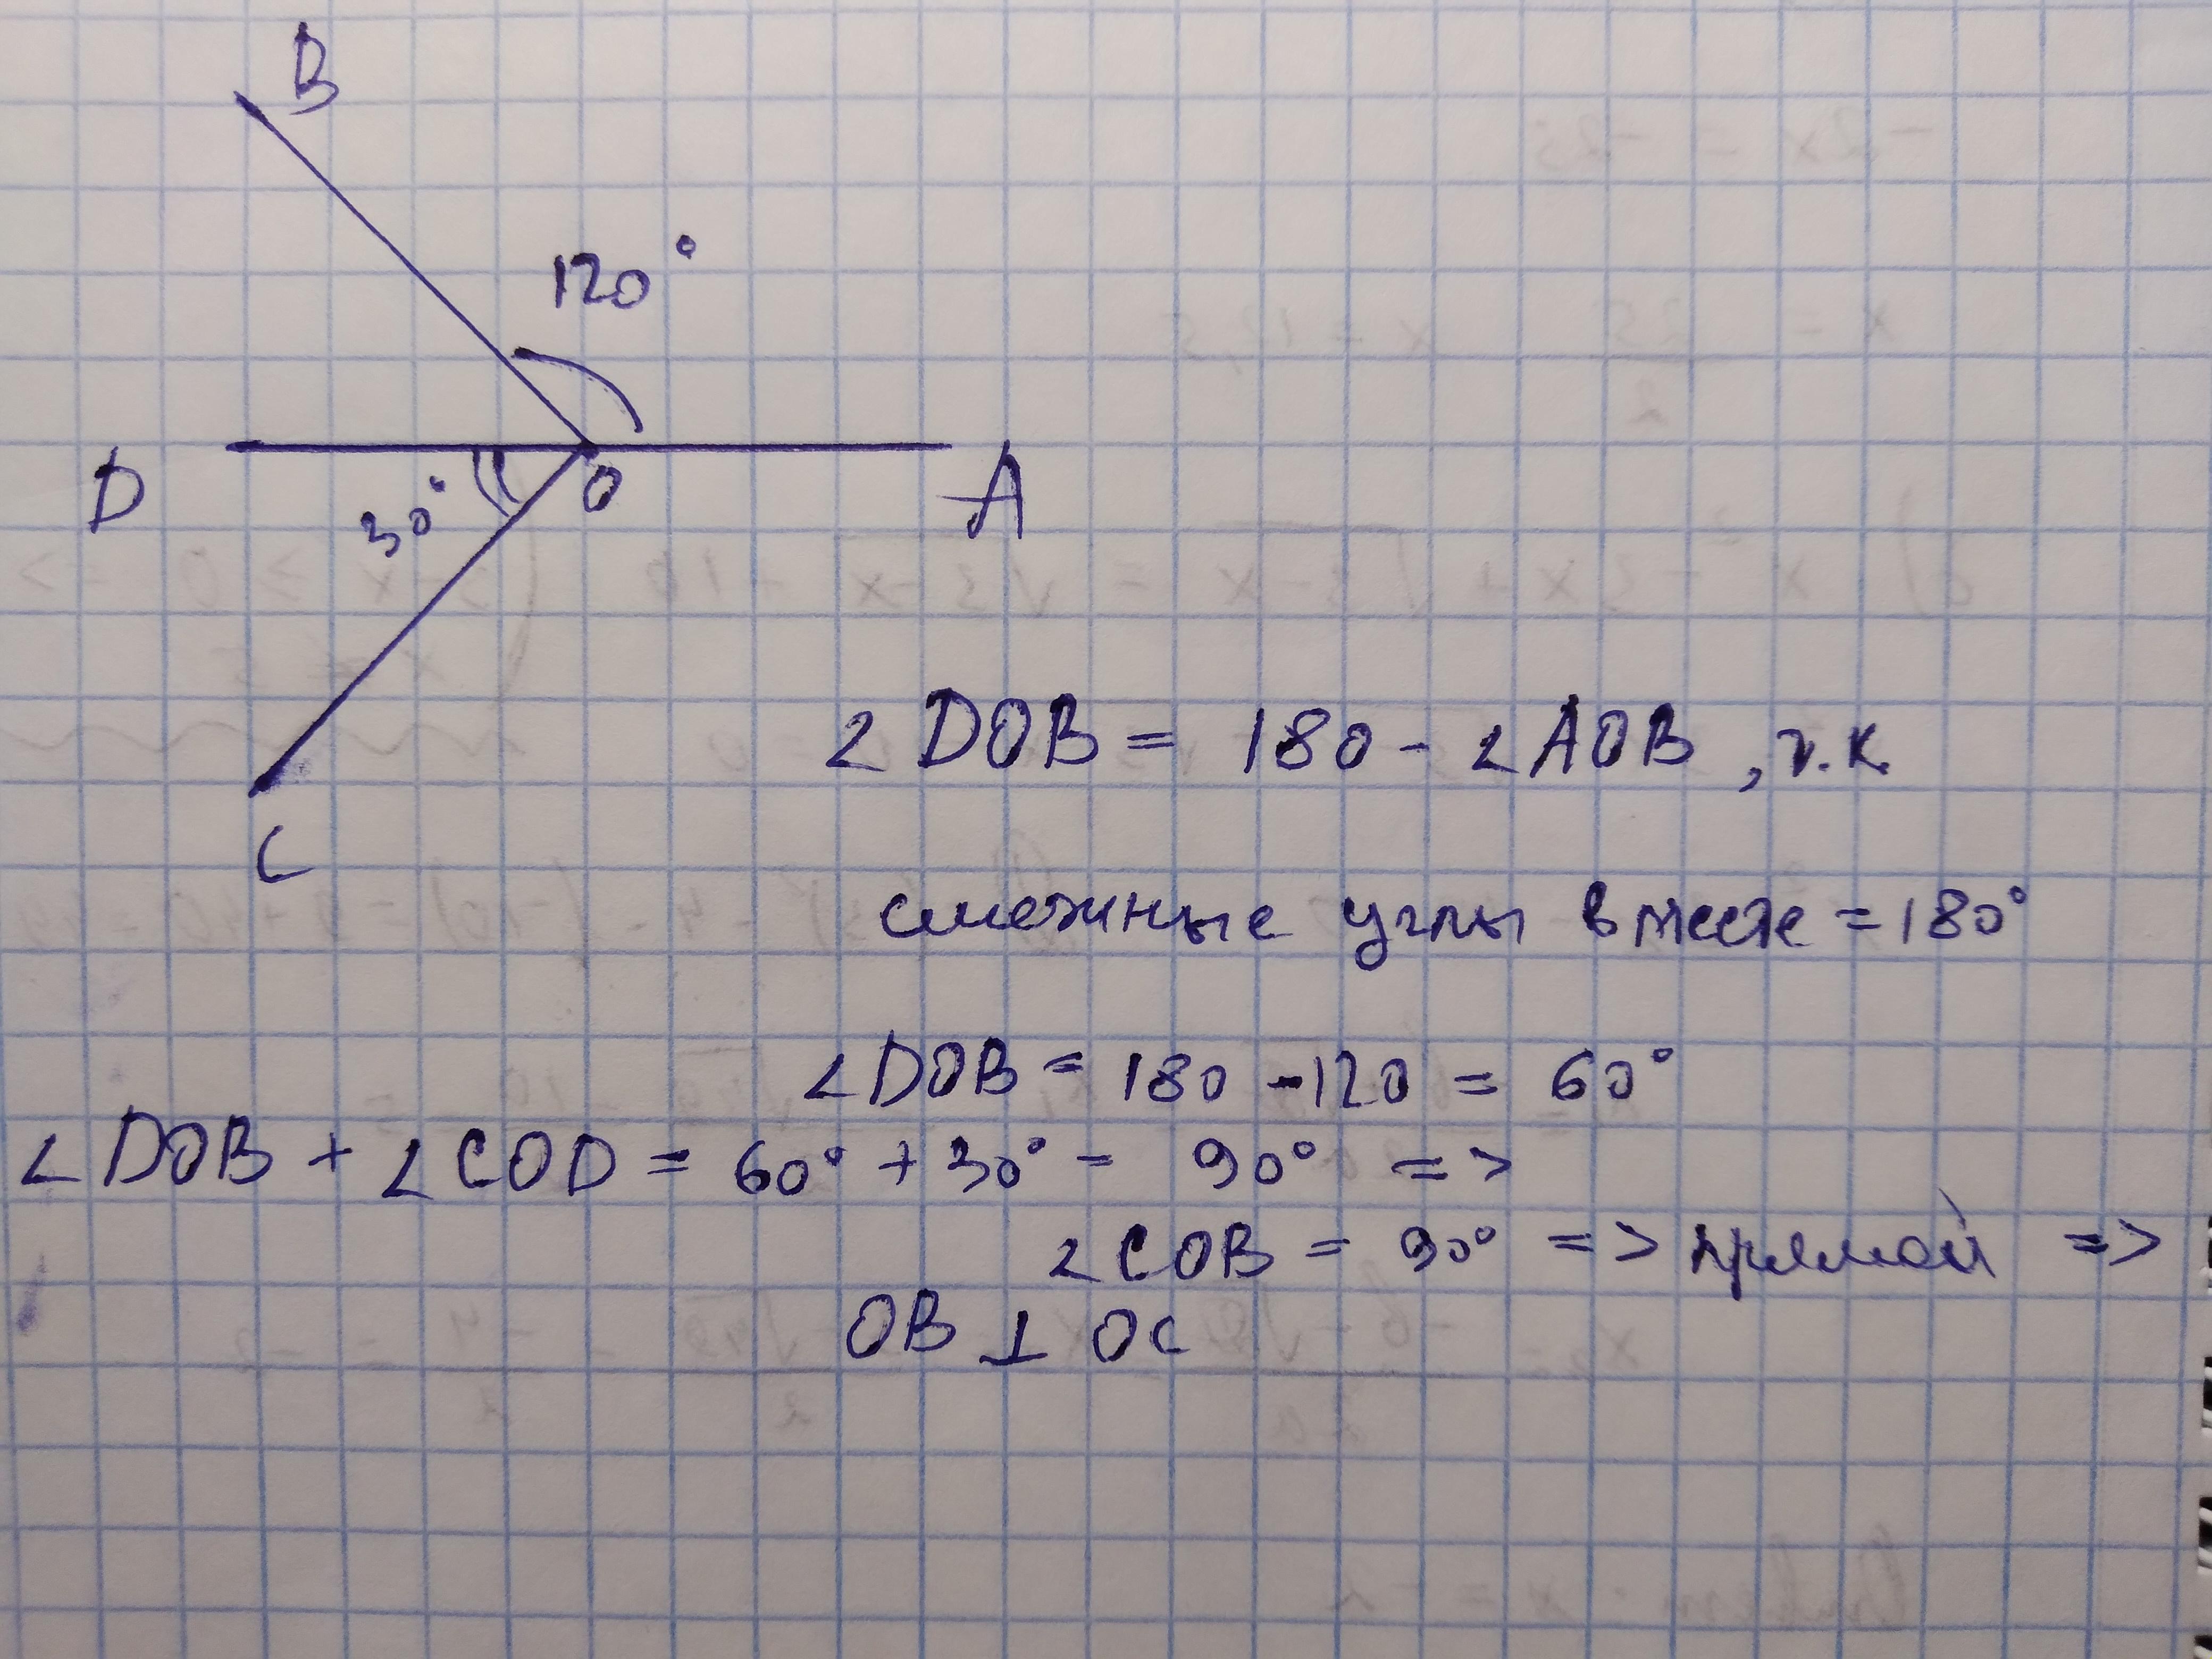 B
120°
D
30°
O
A
C
∠DOB = 180 - ∠AOB, т.к.
смежные углы вместе = 180°
∠DOB = 180 - 120 = 60°
∠DOB + ∠COD = 60° + 30° = 90° =>
∠COB = 90° => прямой =>
OB ⊥ OC